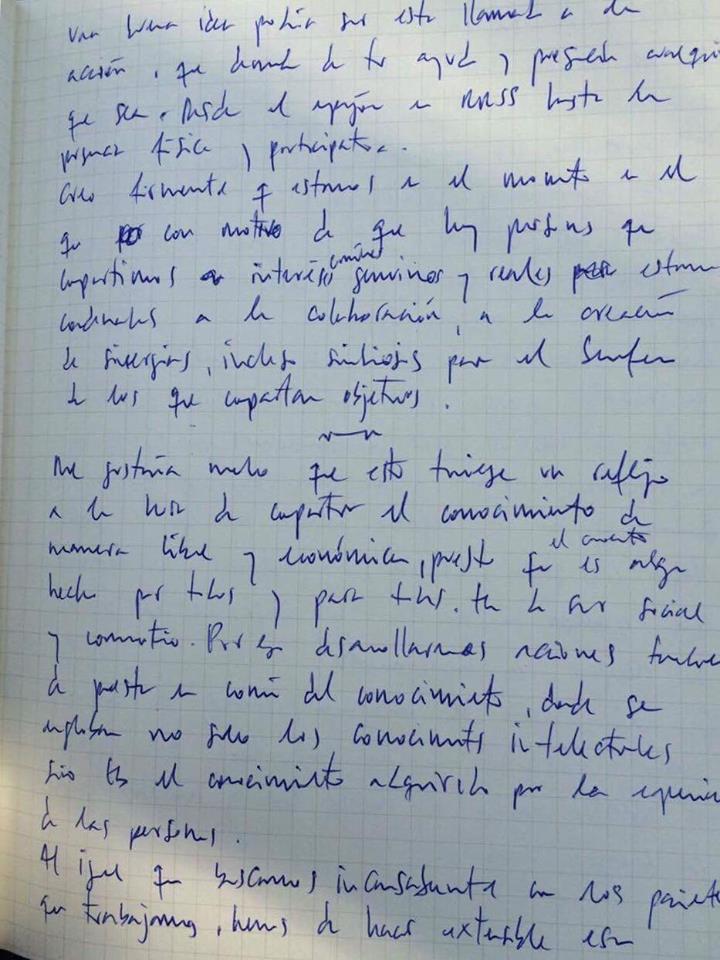 Una buena idea podría ser esta llamada a la
acción, que demanda de tu ayuda y presencia
que sea. Desde el apoyo en RRSS hasta la
presencia física y participativa.
Creo firmemente q estamos en el momento en el
que con motivo de que hay personas que
compartimos intereses comunes genuinos y reales estamos
condenados a la colaboración, a la creación
de sinergias, incluso simbiosis por el
de los que compartan objetivos.
Me gustaría mucho que esto tuviese un reflejo
a la hora de compartir el conocimiento de
manera libre y económica, puesto que el es algo
hecho por tds y para tds. ha de ser social
y Por eso desarrollaremos acciones
de puesta en común del conocimiento, donde se
no solo los conocimientos intelectuales
sino tb el conocimiento adquirido por la experiencia
de las personas.
Al igual que buscamos incansablemente en los
que trabajamos, hemos de hacer extensible esa